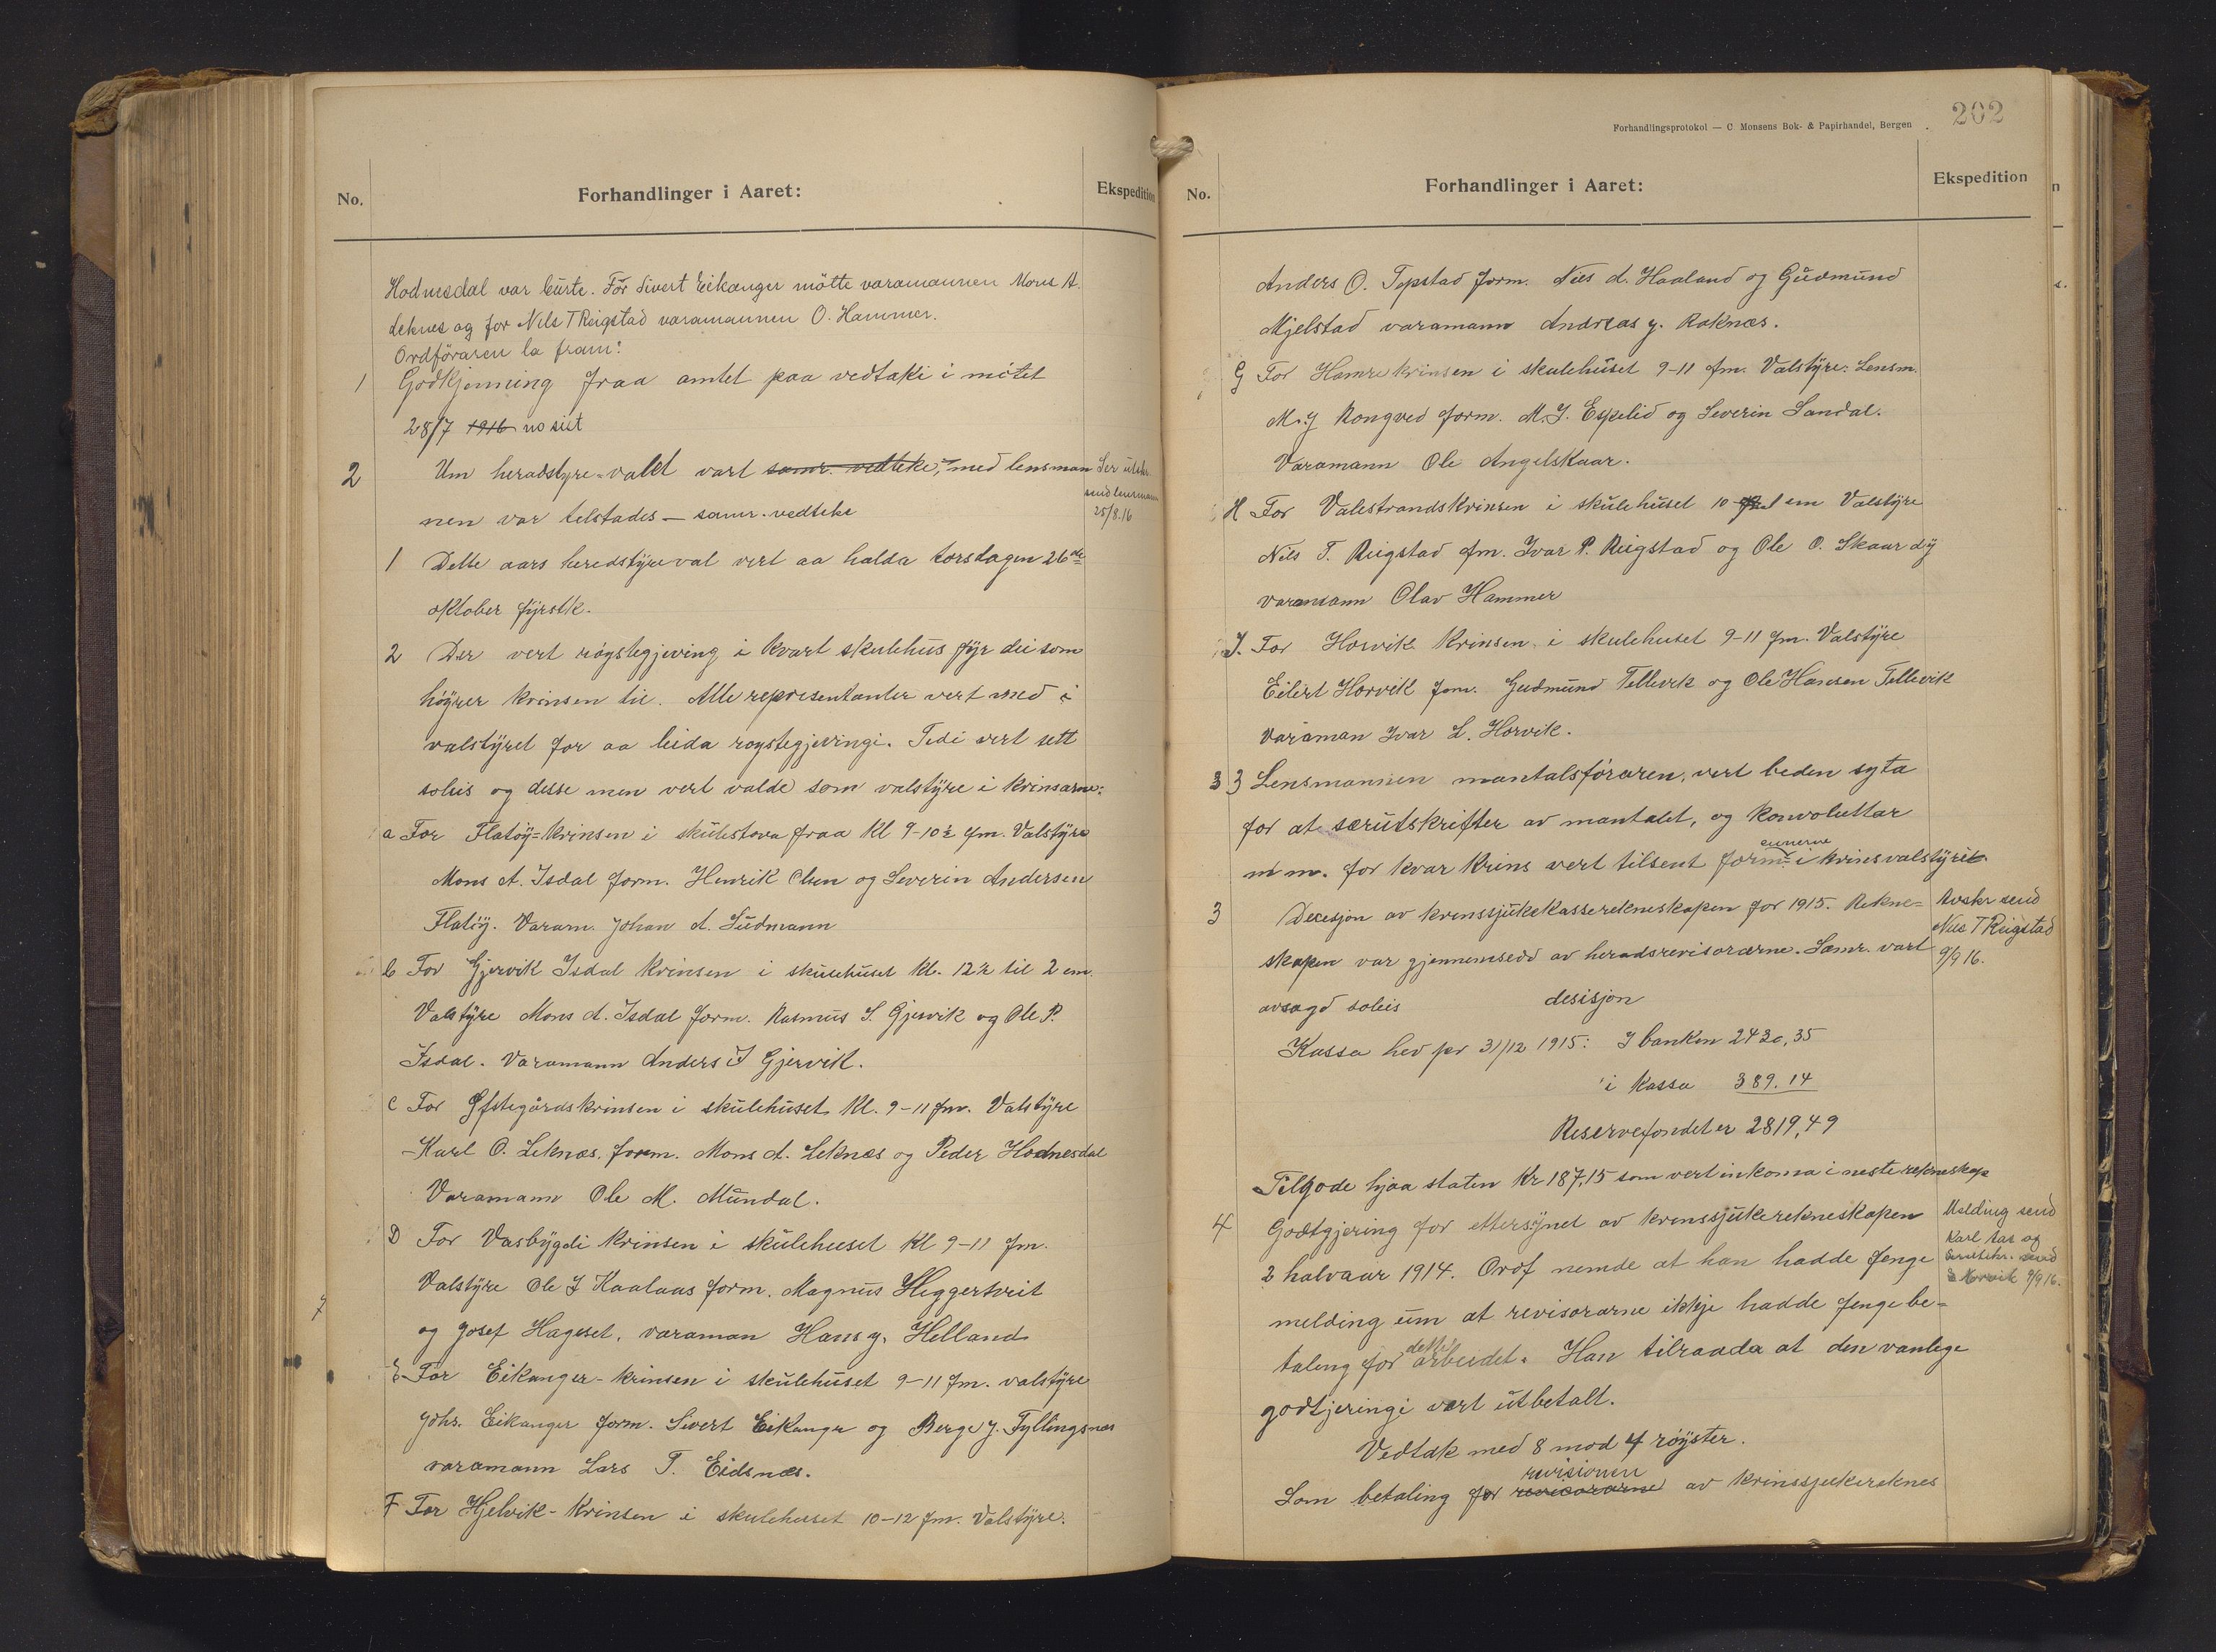 No.
Forhandlinger i Aaret:
Ekspedition
Hodnesdal var burte. For Sivert Eikanger mötte varamannen Mons A.
Leknes og for Nils T Reigstad varamannen O. Hammer.
Ordföraren la fram:
1 Godkjenning fraa amtet paa vedtaki i mötet
28/7 1916 no sist
2 Um heradstyre-valet vart samr. vedteke, med lensman
nen var tilstades – samr. vedteke
Ser utskr.
send lensmann
25/8.16
1 Dette aars heredstyreval vert aa halda torsdagen 26de
oktober fyrstk.
2 Der vert röystegjeving i kvart skulehus fyr dei som
höyrer krinsen til. Alle representanter vert med i
valstyret for aa leida roystegjevingi. Tidi vert sett
soleis og desse men vert valde som valstyre i krinsarne:
a For Flatöy-krinsen i skulestova fraa Kl 9-10½ fm. Valstyre
Mons A. Isdal form. Henrik Olsen og Severin Andersen
Flatöy. Varam. Johan A. Sudmann
b For Gjervik Isdal krinsen i skulehuset Kl. 12½ til 2 em.
Valstyre Mons A. Isdal form. Rasmus S. Gjervik og Ole P.
Isdal. Varamann Anders I Gjervik.
c For Øfstegårdskrinsen i skulehuset Kl. 9-11 fm. Valstyre
Karl O. Leknæs. form. Mons A. Leknæs og Peder Hodnesdal
Varamann Ole M. Mundal.
D For Vasbygdi krinsen i skulehuset Kl 9-11 fm.
Valstyre Ole J Kaalaas form. Magnus Heggertveit
og Josef Hageset. varaman Hans J. Helland
E For Eikanger-krinsen i skulehuset 9-11 fm. valstyre
Johs. Eikanger form. Sivert Eikanger og Berge J. Fyllingsnæs
varamann Lars T. Eidsnæs.
F For Hjelvik-Krinsen i skulehuset 10-12 fm. Valstyre.
Forhandlingsprotokol — C. Monsens Bok- & Papirhandel, Bergen
202
No.
Forhandlinger i Aaret:
Ekspedition
Anders O. Topstad form. Nils A. Haaland og Gudmund
Mjelstad varamann Andreas J. Raknæs.
G For Hamrekrinsen i skulehuset 9-11 fm. Valstyre: Lensm.
M. J Rongved form. M. J. Espelid og Severin Sandal.
Varamann Ole Angelskaar.
H For Valestrandskrinsen i skulehuset 10 1 em Valstyre
Nils T. Reigstad fm. Ivar P. Reigstad og Ole O. Skaar
varamann Olav Hammer
J. For Horvik Krinsen i skulehuset 9-11 fm. Valstyre
Eilert Horvik fom. Gudmund Tellevik og Ole Hansen Tellevik
Varaman Ivar L. Horvik.
3 3 Lensmannen mantalsföraren, vert beden syta
for at særutskrifter av mantalet, og konvoluttar
m m. for kvar krins vert tilsent form. i krinsvalstyre.
3 Decesjon av krinssjukekasserekneskapen for 1915. Rekne-
skapen var gjennemsedd av heradsrevisorarne. Samr. vart
avsagd soleis desisjon
Avskr send
Nils T Reigstad
9/9 16.
Kassa hev pr 31/12 1915: I banken 2430,35
i kassa 389.14
Reservefondet er 2819,49
Tilgode hjaa staten Kr 187,15 som vert inkoma i neste rekneskap
4 Godtgjering for ettersynet av krinssjukerekneskapen
2 halvaar 1914. Ordf nemde at han hadde fenge
melding um at revisorarne ikkje hadde fenge be-
taling for dette arbeidet. Han tilraada at den vanlege
godtjeringi vart utbetalt.
Melding send
Karl Aas og
særutskr. send
Horvik 9/9 16.
Vedtak med 8 mod 4 röyster.
Som betaling for revisorarne revisionen av krinssjukereknes